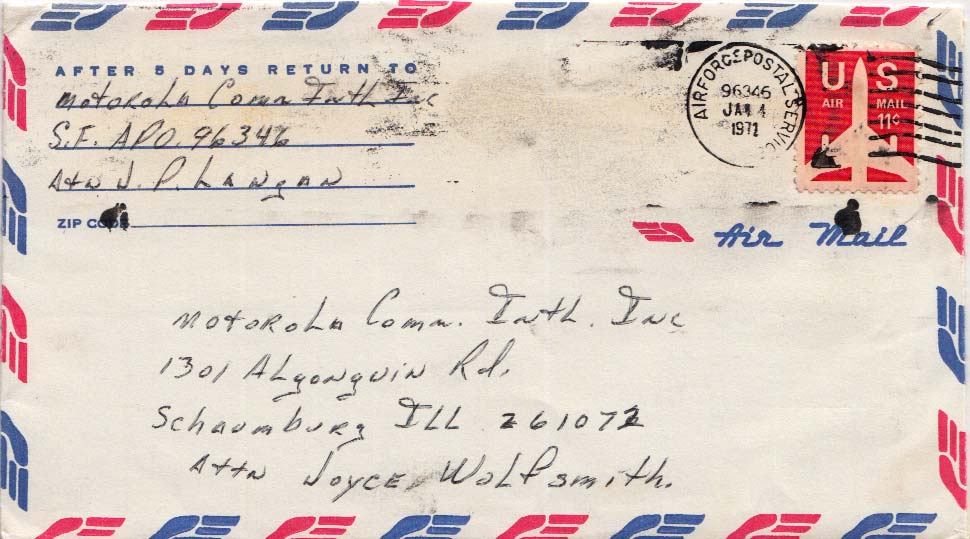 AFTER 5 DAYS RETURN TO
Motorola Comm Intl Inc
S.F. APO. 96346
Attn J. P. Langan
ZIP CODE
AIR FORCE POSTAL SERVIC
96346
JAN 4
1971
U S
AIR MAIL
11¢
Air Mail
Motorola Comm. Intl. Inc
1301 Algonquin Rd.
Schaumburg ILL 261072
Attn Joyce Wolfsmith.